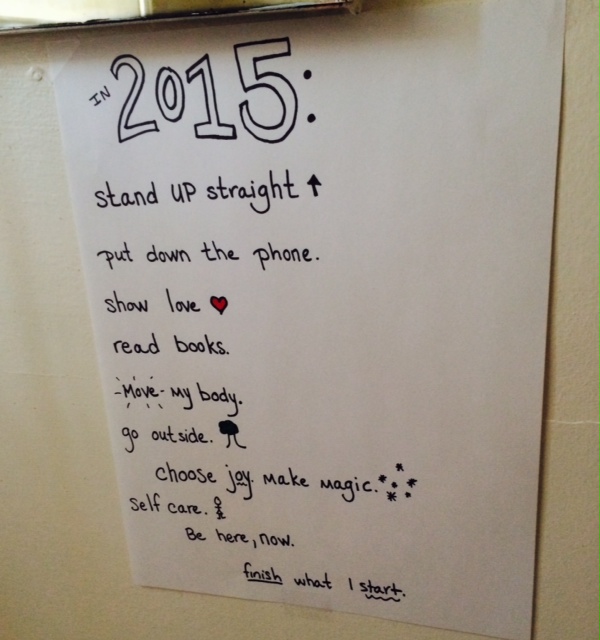 IN 2015:
stand up straight ↑
put down the phone.
show love ♥
read books.
-Move- my body.
go outside.
choose joy. make magic.
self care.
Be here, now.
finish what I start.